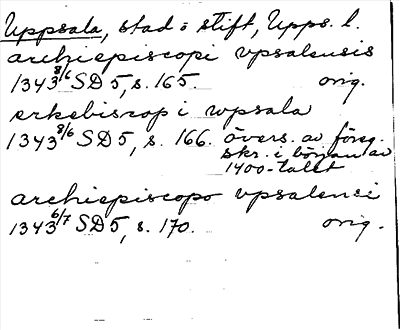 Uppsala, stad o stift, Upps. l.
archiepiscopi vpsalensis
1343 8/6 SD 5, s. 165. orig.
erkebiscop i wpsala
1343 8/6 SD 5, s. 166. övers. av föreg.
skr. i början av
1400-talet
archiepiscopo vpsalensi
1343 6/7 SD 5, s. 170. orig.